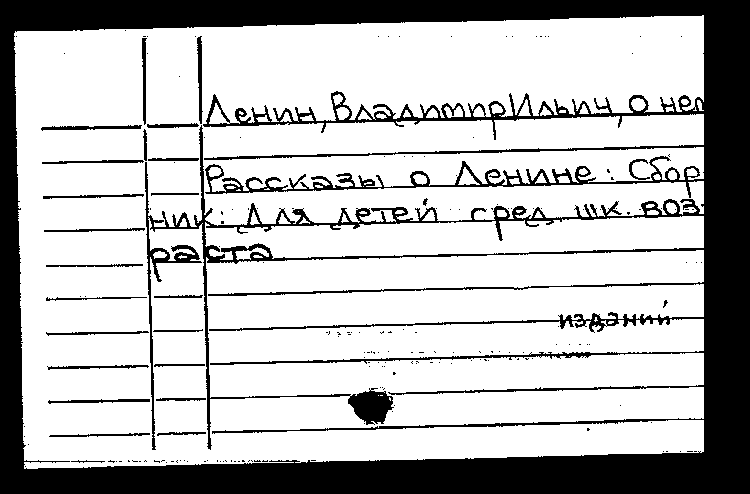 Ленин, Владимир Ильич, о нем
Рассказы о Ленине: Сбор-
ник: Для детей сред. шк. воз-
раста
изданий